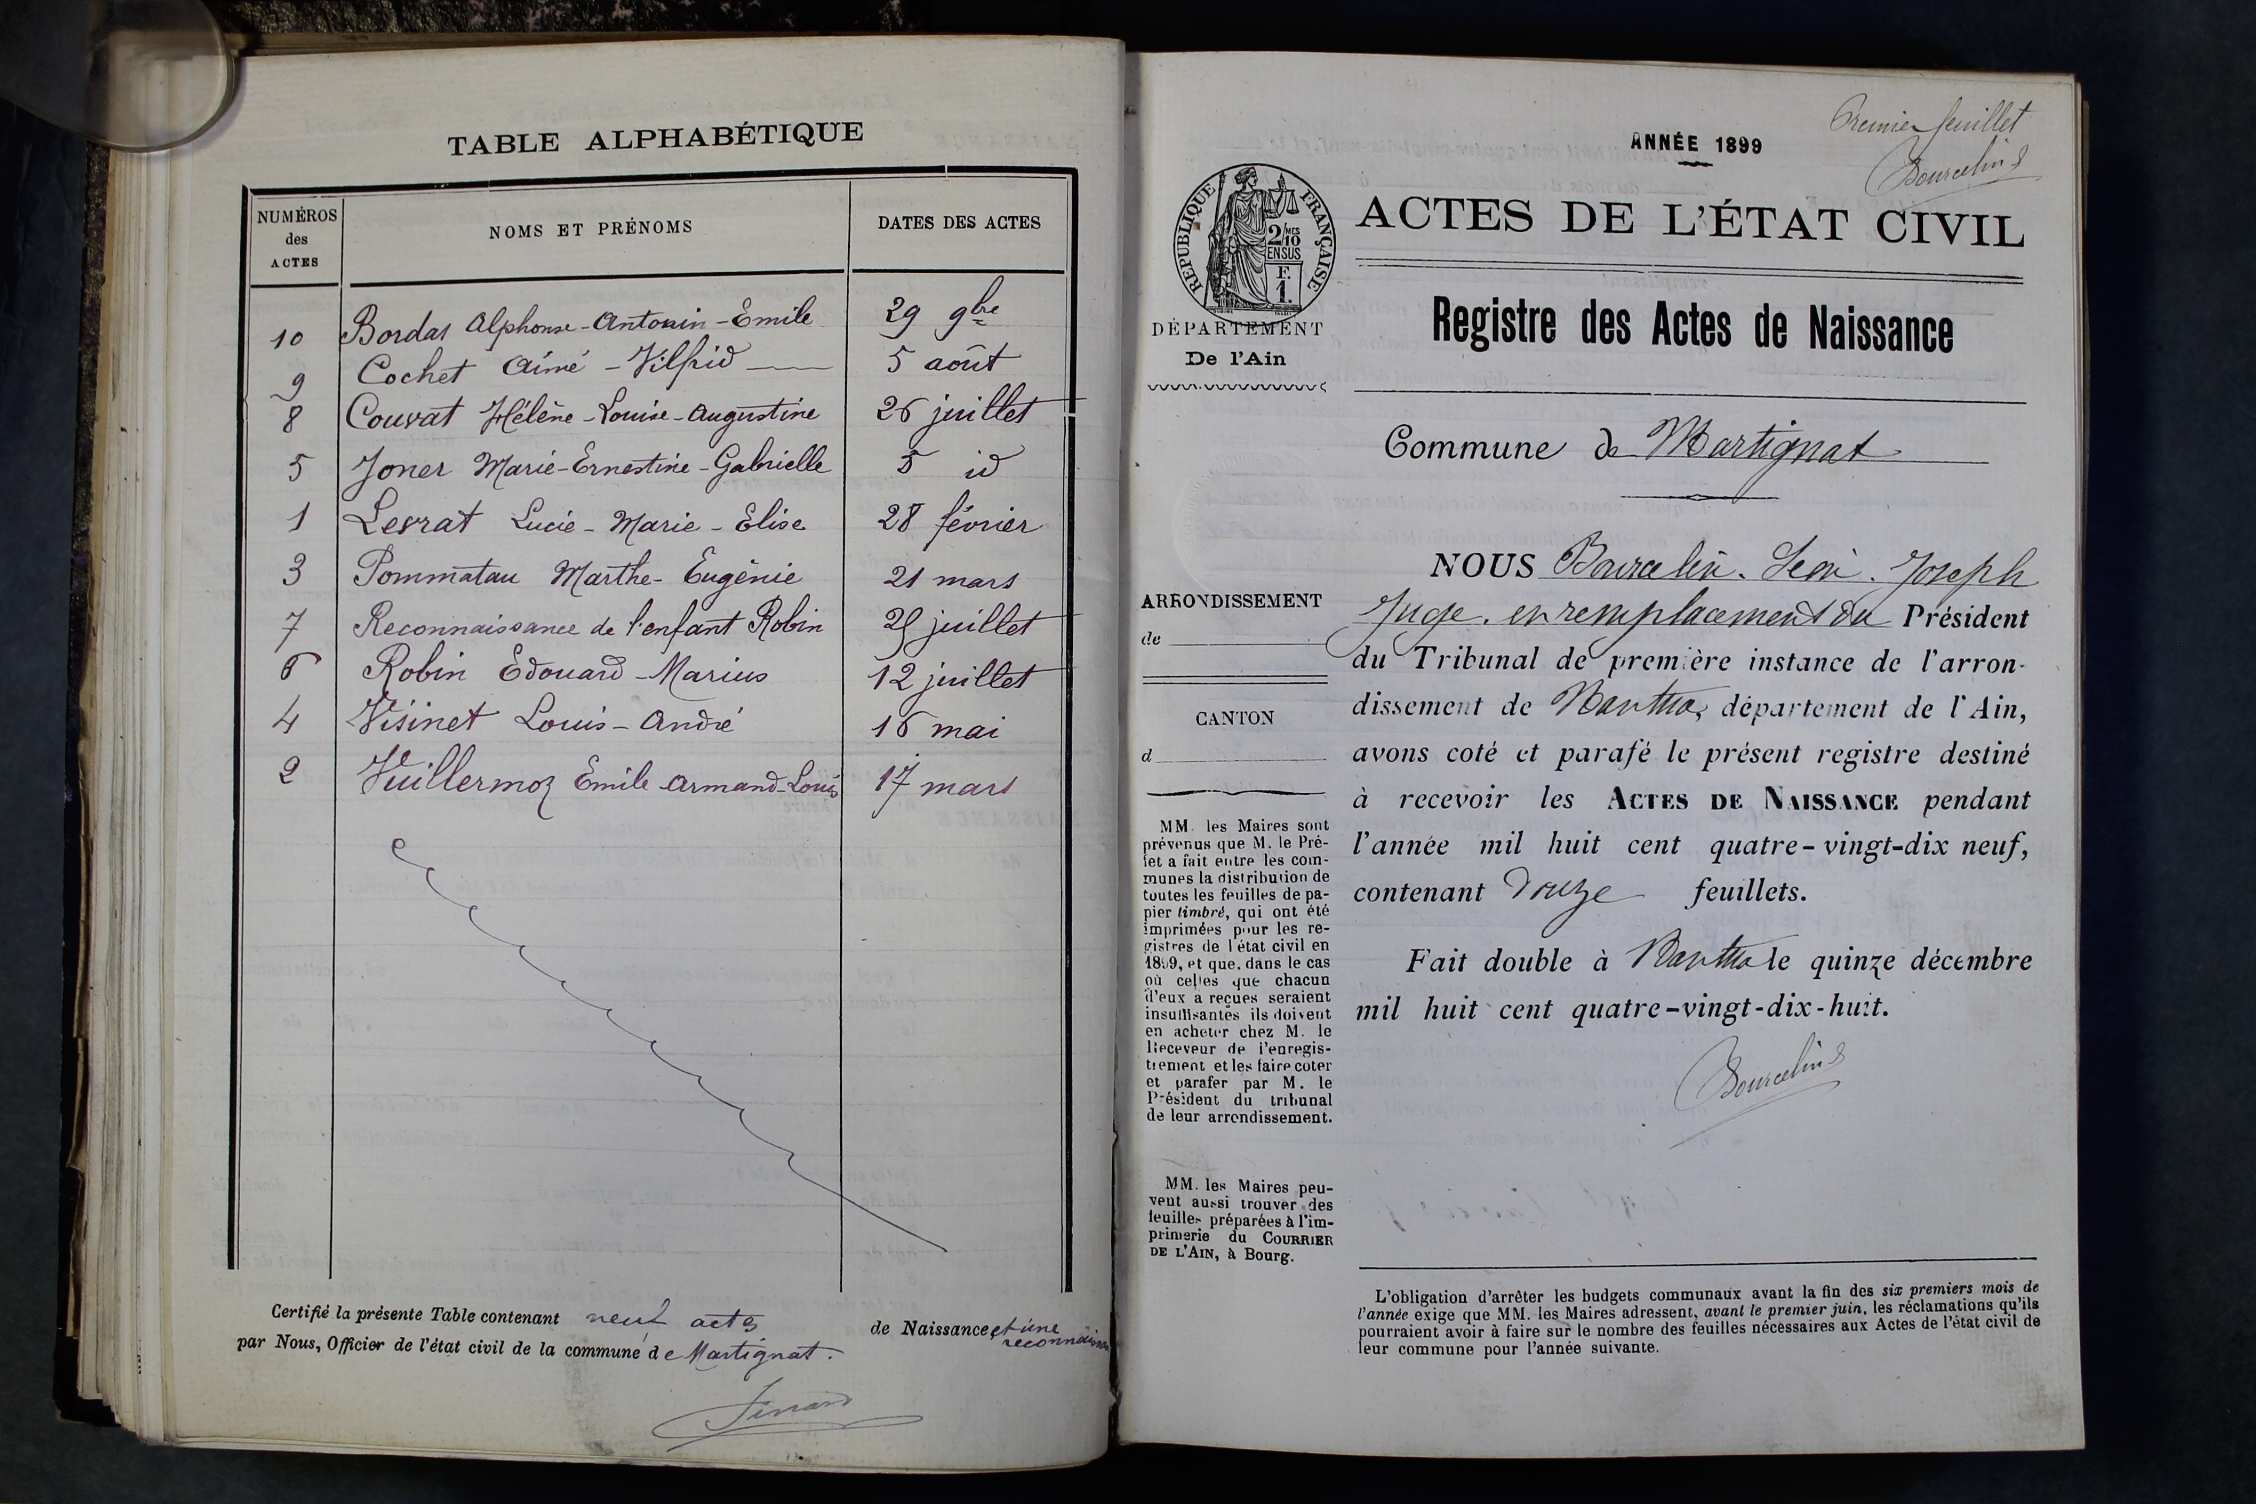 TABLE ALPHABÉTIQUE
NUMÉROS des ACTES
NOMS ET PRÉNOMS
DATES DES ACTES
10 Bordas Alphonse-Antonin-Emile 29 9bre
9 Cochet Aimé - Vilfrid 5 août
8 Couvat Hélène-Louise-Augustine 26 juillet
5 Joner Marie-Ernestine-Gabrielle 5 id
1 Levrat Lucie - Marie - Elise 28 février
3 Pommatau Marthe- Eugénie 21 mars
7 Reconnaissance de l'enfant Robin 25 juillet
6 Robin Edouard - Marius 12 juillet
4 Visinet Louis - André 16 mai
2 Vuillermoz Emile-Armand-Louis 17 mars
Certifié la présente Table contenant neuf actes de Naissance et une reconnaissance
par Nous, Officier de l'état civil de la commune de Martignat.
Premier feuillet
Bourcelin
ANNÉE 1899
RÉPUBLIQUE FRANÇAISE
2/10MES
EN SUS
F.
1.
ACTES DE L'ÉTAT CIVIL
DÉPARTEMENT
De l'Ain
Registre des Actes de Naissance
Commune de Martignat
ARRONDISSEMENT
de
CANTON
d
MM. les Maires sont
prévenus que M. le Pré-
fet a fait entre les com-
munes la distribution de
toutes les feuilles de pa-
pier timbré, qui ont été
imprimées pour les re-
gistres de l'état civil en
1899, et que, dans le cas
où celles que chacun
d'eux a reçues seraient
insuffisantes ils doivent
en acheter chez M. le
Receveur de l'enregis-
trement et les faire coter
et parafer par M. le
Président du tribunal
de leur arrondissement.
MM. les Maires peu-
vent aussi trouver des
feuilles préparées à l'im-
primerie du COURRIER
DE L'AIN, à Bourg.
NOUS Bourcelin. Léon. Joseph
Juge. en remplacement du Président
du Tribunal de première instance de l'arron-
dissement de Nantua, département de l'Ain,
avons coté et parafé le présent registre destiné
à recevoir les ACTES DE NAISSANCE pendant
l'année mil huit cent quatre-vingt-dix neuf,
contenant douze feuillets.
Fait double à Nantua le quinze décembre
mil huit cent quatre-vingt-dix-huit.
Bourcelin
L'obligation d'arrêter les budgets communaux avant la fin des six premiers mois de
l'année exige que MM. les Maires adressent, avant le premier juin, les réclamations qu'ils
pourraient avoir à faire sur le nombre des feuilles nécessaires aux Actes de l'état civil de
leur commune pour l'année suivante.